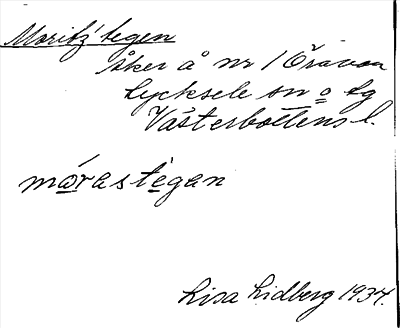 Moritz' tegen
åker å nr 1 Öravan
Lycksele sn o lg
Västerbottens l.
mårastegan
Lisa Lidberg 1934.